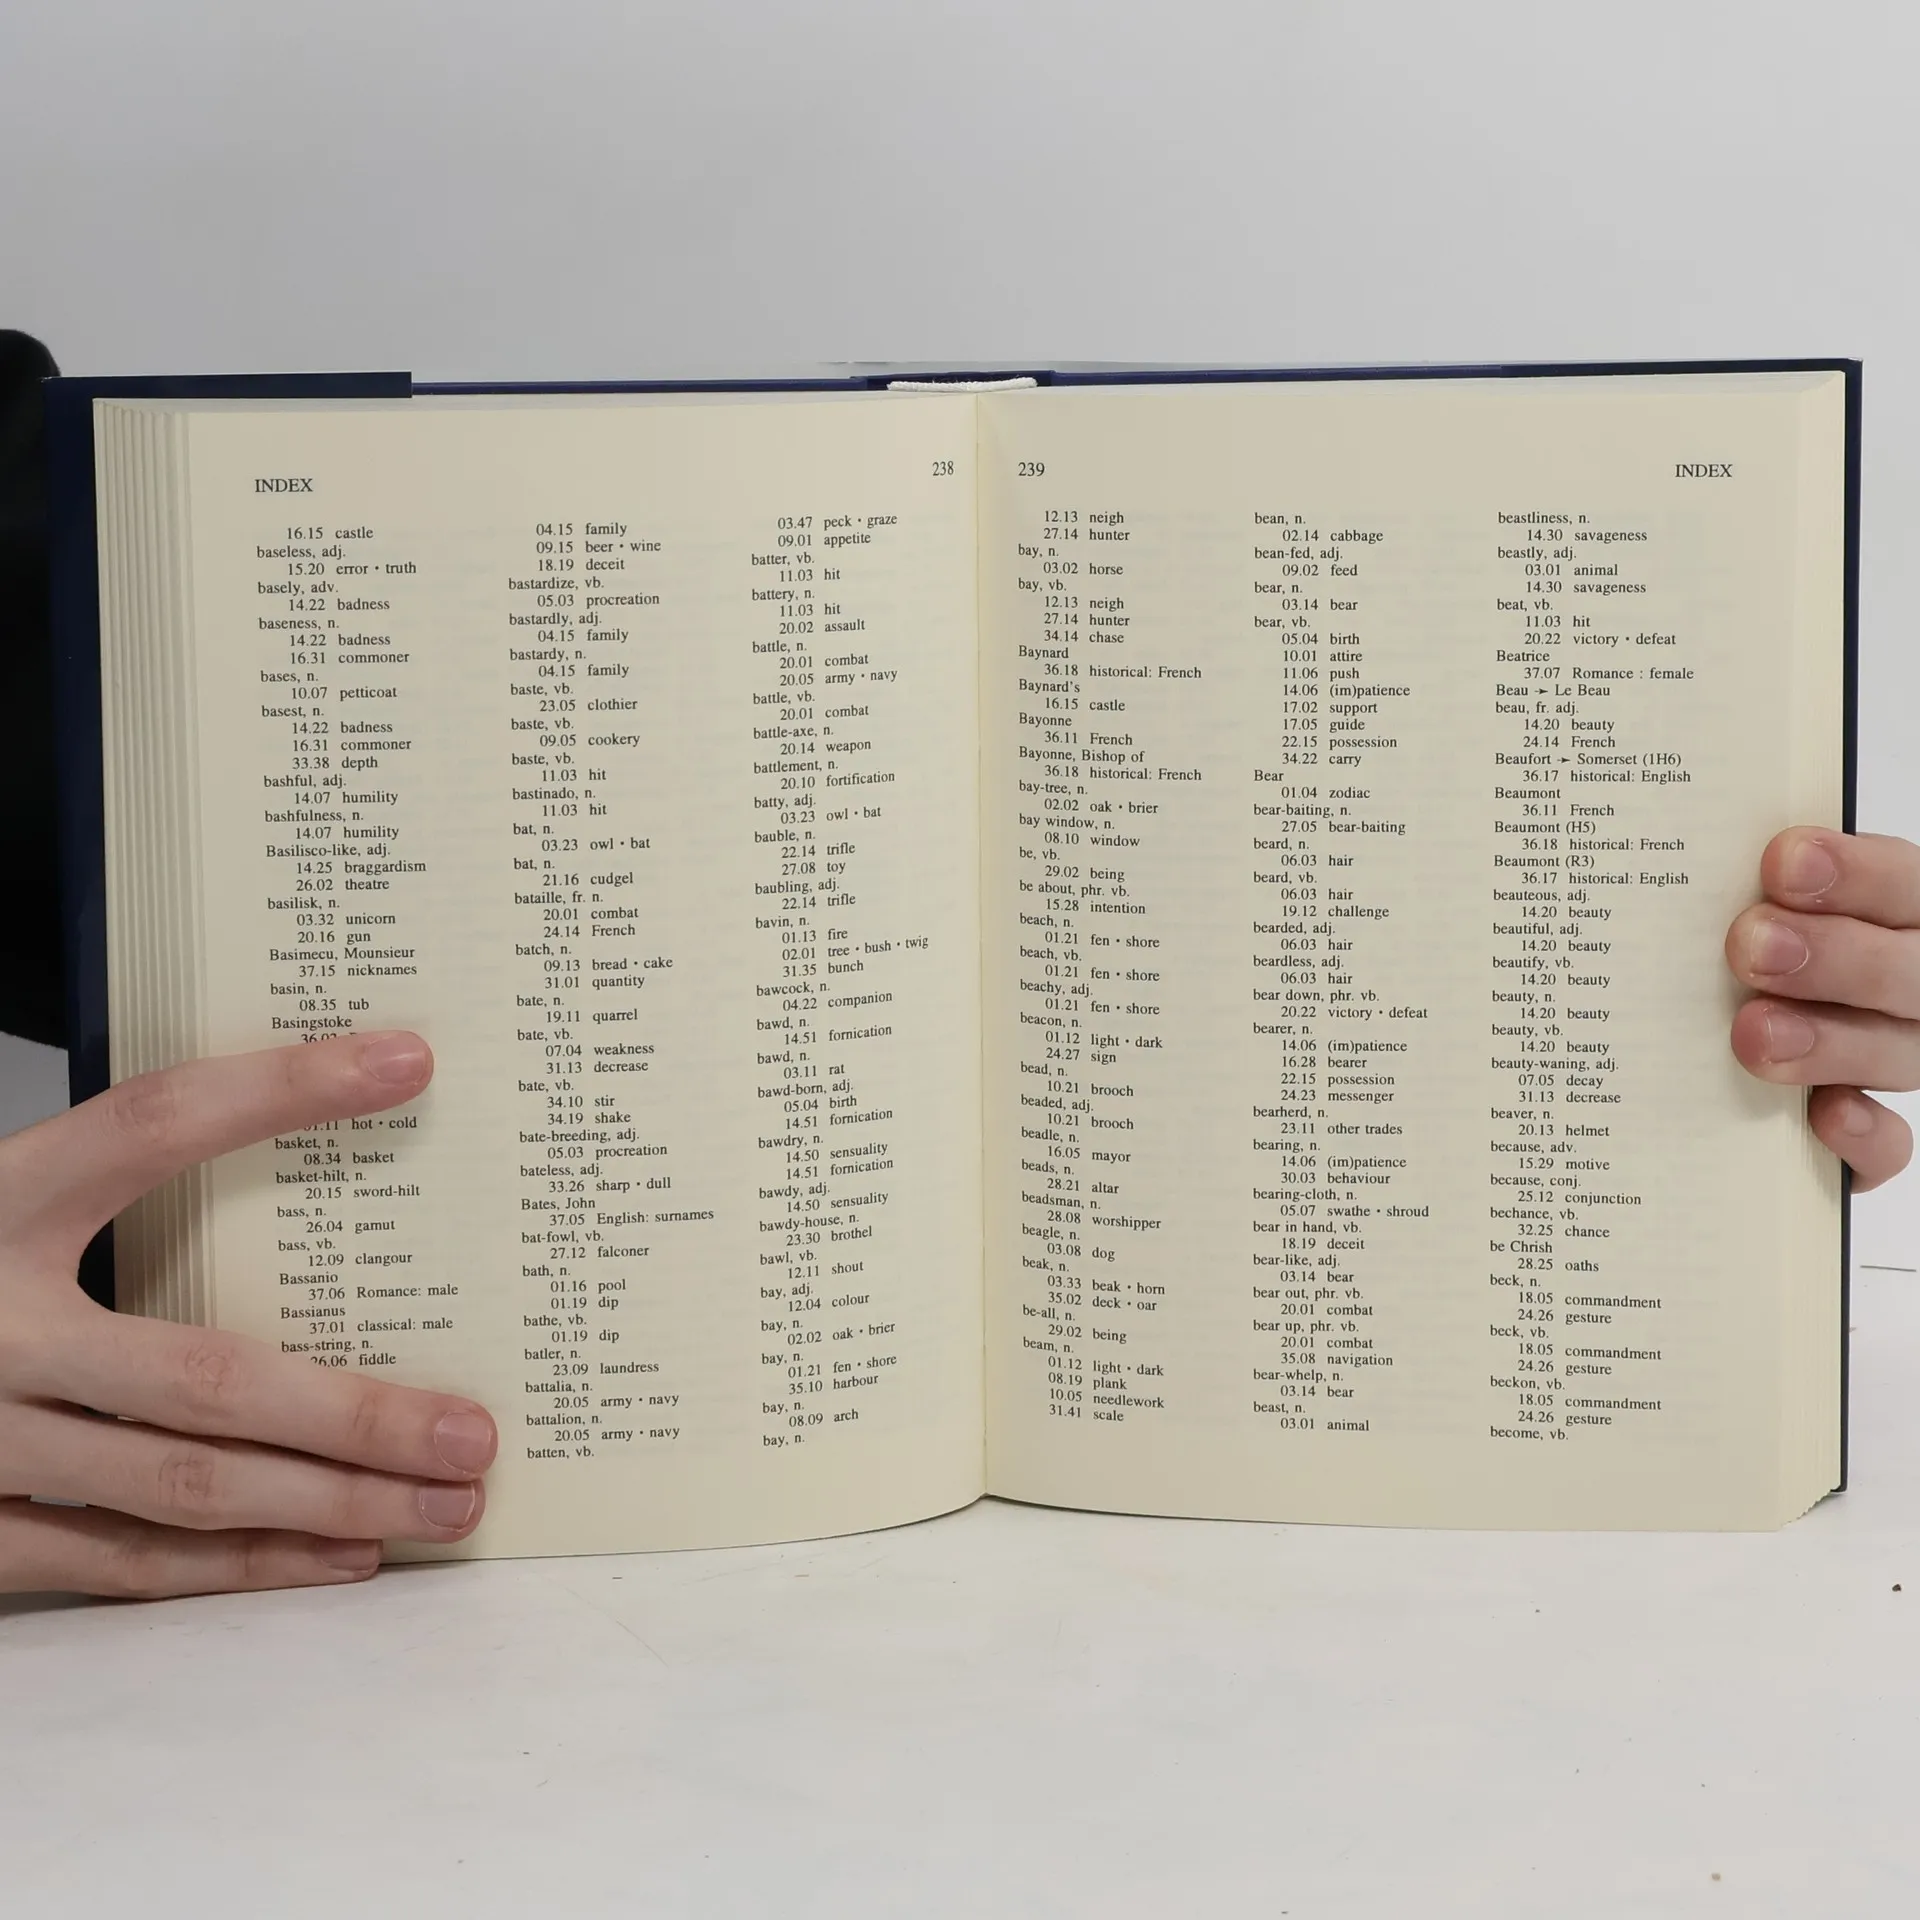 INDEX
238
16.15 castle
baseless, adj.
15.20 error • truth
basely, adv.
14.22 badness
baseness, n.
14.22 badness
16.31 commoner
bases, n.
10.07 petticoat
basest, n.
14.22 badness
16.31 commoner
33.38 depth
bashful, adj.
14.07 humility
bashfulness, n.
14.07 humility
Basilisco-like, adj.
14.25 braggardism
26.02 theatre
basilisk, n.
03.32 unicorn
20.16 gun
Basimecu, Mounsieur
37.15 nicknames
basin, n.
08.35 tub
Basingstoke
hot • cold
basket, n.
08.34 basket
basket-hilt, n.
20.15 sword-hilt
bass, n.
26.04 gamut
bass, vb.
12.09 clangour
Bassanio
37.06 Romance: male
Bassianus
37.01 classical: male
bass-string, n.
26.06 fiddle
04.15 family
09.15 beer • wine
18.19 deceit
bastardize, vb.
05.03 procreation
bastardly, adj.
04.15 family
bastardy, n.
04.15 family
baste, vb.
23.05 clothier
baste, vb.
09.05 cookery
baste, vb.
11.03 hit
bastinado, n.
11.03 hit
bat, n.
03.23 owl • bat
bat, n.
21.16 cudgel
bataille, fr. n.
20.01 combat
24.14 French
batch, n.
09.13 bread • cake
31.01 quantity
bate, n.
19.11 quarrel
bate, vb.
07.04 weakness
31.13 decrease
bate, vb.
34.10 stir
34.19 shake
bate-breeding, adj.
05.03 procreation
bateless, adj.
33.26 sharp • dull
Bates, John
37.05 English: surnames
bat-fowl, vb.
27.12 falconer
bath, n.
01.16 pool
01.19 dip
bathe, vb.
01.19 dip
batler, n.
23.09 laundress
battalia, n.
20.05 army • navy
battalion, n.
20.05 army • navy
batten, vb.
03.47 peck • graze
09.01 appetite
batter, vb.
11.03 hit
battery, n.
11.03 hit
20.02 assault
battle, n.
20.01 combat
20.05 army • navy
battle, vb.
20.01 combat
battle-axe, n.
20.14 weapon
battlement, n.
20.10 fortification
batty, adj.
03.23 owl • bat
bauble, n.
22.14 trifle
27.08 toy
baubling, adj.
22.14 trifle
bavin, n.
01.13 fire
02.01 tree • bush • twig
31.35 bunch
bawcock, n.
04.22 companion
bawd, n.
14.51 fornication
bawd, n.
03.11 rat
bawd-born, adj.
05.04 birth
14.51 fornication
bawdry, n.
14.50 sensuality
14.51 fornication
bawdy, adj.
14.50 sensuality
bawdy-house, n.
23.30 brothel
bawl, vb.
12.11 shout
bay, adj.
12.04 colour
bay, n.
02.02 oak • brier
bay, n.
01.21 fen • shore
35.10 harbour
bay, n.
08.09 arch
bay, n.
239
INDEX
12.13 neigh
27.14 hunter
bay, n.
03.02 horse
bay, vb.
12.13 neigh
27.14 hunter
34.14 chase
Baynard
36.18 historical: French
Baynard's
16.15 castle
Bayonne
36.11 French
Bayonne, Bishop of
36.18 historical: French
bay-tree, n.
02.02 oak • brier
bay window, n.
08.10 window
be, vb.
29.02 being
be about, phr. vb.
15.28 intention
beach, n.
01.21 fen • shore
beach, vb.
01.21 fen • shore
beachy, adj.
01.21 fen • shore
beacon, n.
01.12 light • dark
24.27 sign
bead, n.
10.21 brooch
beaded, adj.
10.21 brooch
beadle, n.
16.05 mayor
beads, n.
28.21 altar
beadsman, n.
28.08 worshipper
beagle, n.
03.08 dog
beak, n.
03.33 beak • horn
35.02 deck • oar
be-all, n.
29.02 being
beam, n.
01.12 light • dark
08.19 plank
10.05 needlework
31.41 scale
bean, n.
02.14 cabbage
bean-fed, adj.
09.02 feed
bear, n.
03.14 bear
bear, vb.
05.04 birth
10.01 attire
11.06 push
14.06 (im)patience
17.02 support
17.05 guide
22.15 possession
34.22 carry
Bear
01.04 zodiac
bear-baiting, n.
27.05 bear-baiting
beard, n.
06.03 hair
beard, vb.
06.03 hair
19.12 challenge
bearded, adj.
06.03 hair
beardless, adj.
06.03 hair
bear down, phr. vb.
20.22 victory • defeat
bearer, n.
14.06 (im)patience
16.28 bearer
22.15 possession
24.23 messenger
bearherd, n.
23.11 other trades
bearing, n.
14.06 (im)patience
30.03 behaviour
bearing-cloth, n.
05.07 swathe • shroud
bear in hand, vb.
18.19 deceit
bear-like, adj.
03.14 bear
bear out, phr. vb.
20.01 combat
bear up, phr. vb.
20.01 combat
35.08 navigation
bear-whelp, n.
03.14 bear
beast, n.
03.01 animal
beastliness, n.
14.30 savageness
beastly, adj.
03.01 animal
14.30 savageness
beat, vb.
11.03 hit
20.22 victory • defeat
Beatrice
37.07 Romance : female
Beau ➛ Le Beau
beau, fr. adj.
14.20 beauty
24.14 French
Beaufort ➛ Somerset (1H6)
36.17 historical: English
Beaumont
36.11 French
Beaumont (H5)
36.18 historical: French
Beaumont (R3)
36.17 historical: English
beauteous, adj.
14.20 beauty
beautiful, adj.
14.20 beauty
beautify, vb.
14.20 beauty
beauty, n.
14.20 beauty
beauty, vb.
14.20 beauty
beauty-waning, adj.
07.05 decay
31.13 decrease
beaver, n.
20.13 helmet
because, adv.
15.29 motive
because, conj.
25.12 conjunction
bechance, vb.
32.25 chance
be Chrish
28.25 oaths
beck, n.
18.05 commandment
24.26 gesture
beck, vb.
18.05 commandment
24.26 gesture
beckon, vb.
18.05 commandment
24.26 gesture
become, vb.